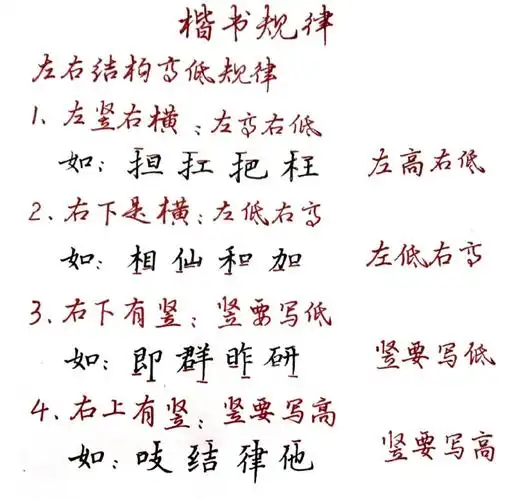 楷书规律
左右结构高低规律
1、左竖右横：左高右低
如：担 扛 把 枉 左高右低
2、右下是横：左低右高
如：相 仙 和 加 左低右高
3、右下有竖：竖要写低
如：即 群 昨 研 竖要写低
4、右上有竖：竖要写高
如：吱 结 律 他 竖要写高